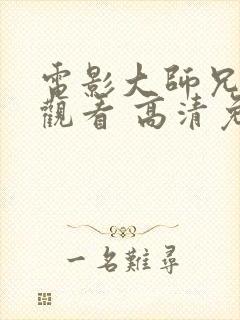 電影大師兄
觀看 高清 免
一名難尋